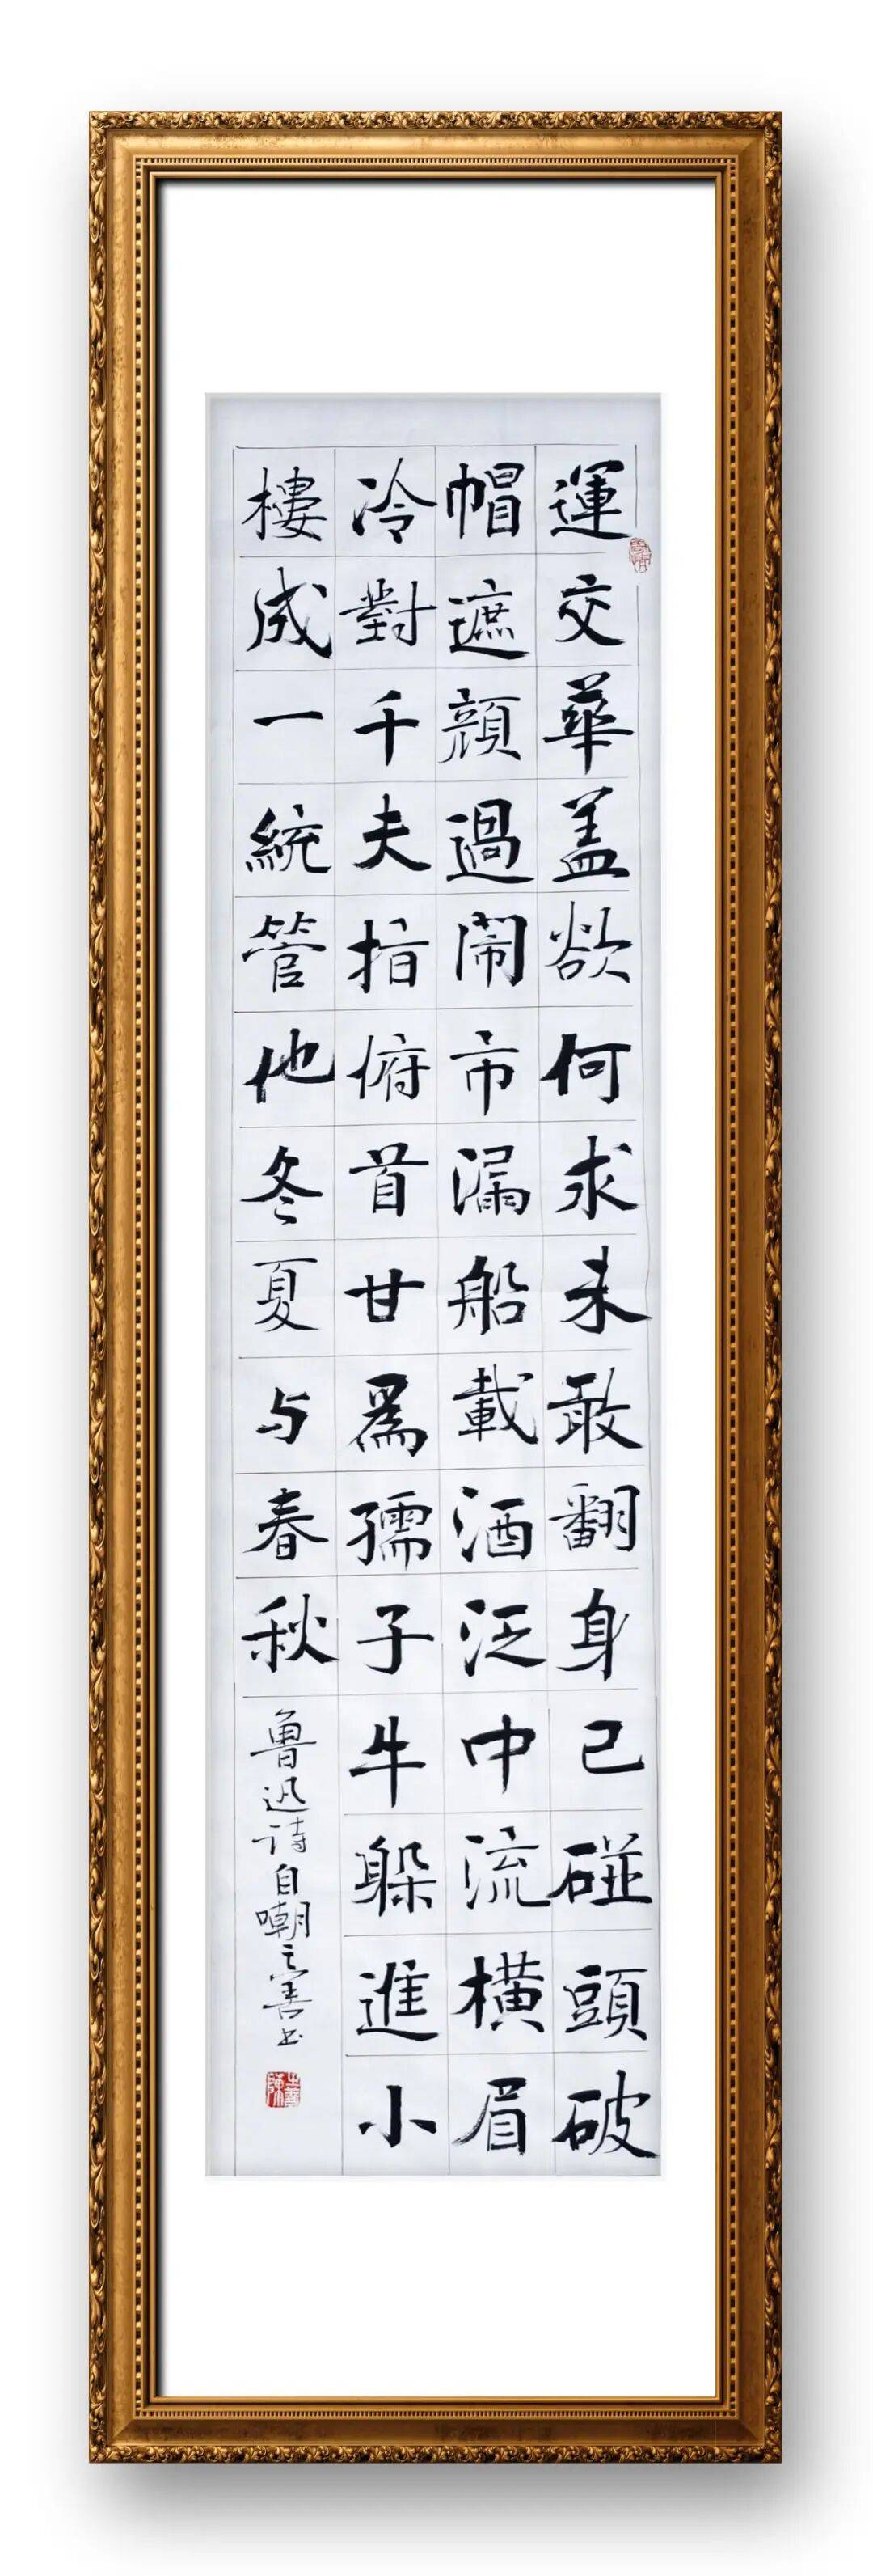 運交華盖欲何求未敢翻身已碰頭破
帽遮顔過鬧市漏船載酒泛中流橫眉
冷對千夫指俯首甘為孺子牛躲進小
樓成一統管他冬夏与春秋
魯迅诗自嘲之善书